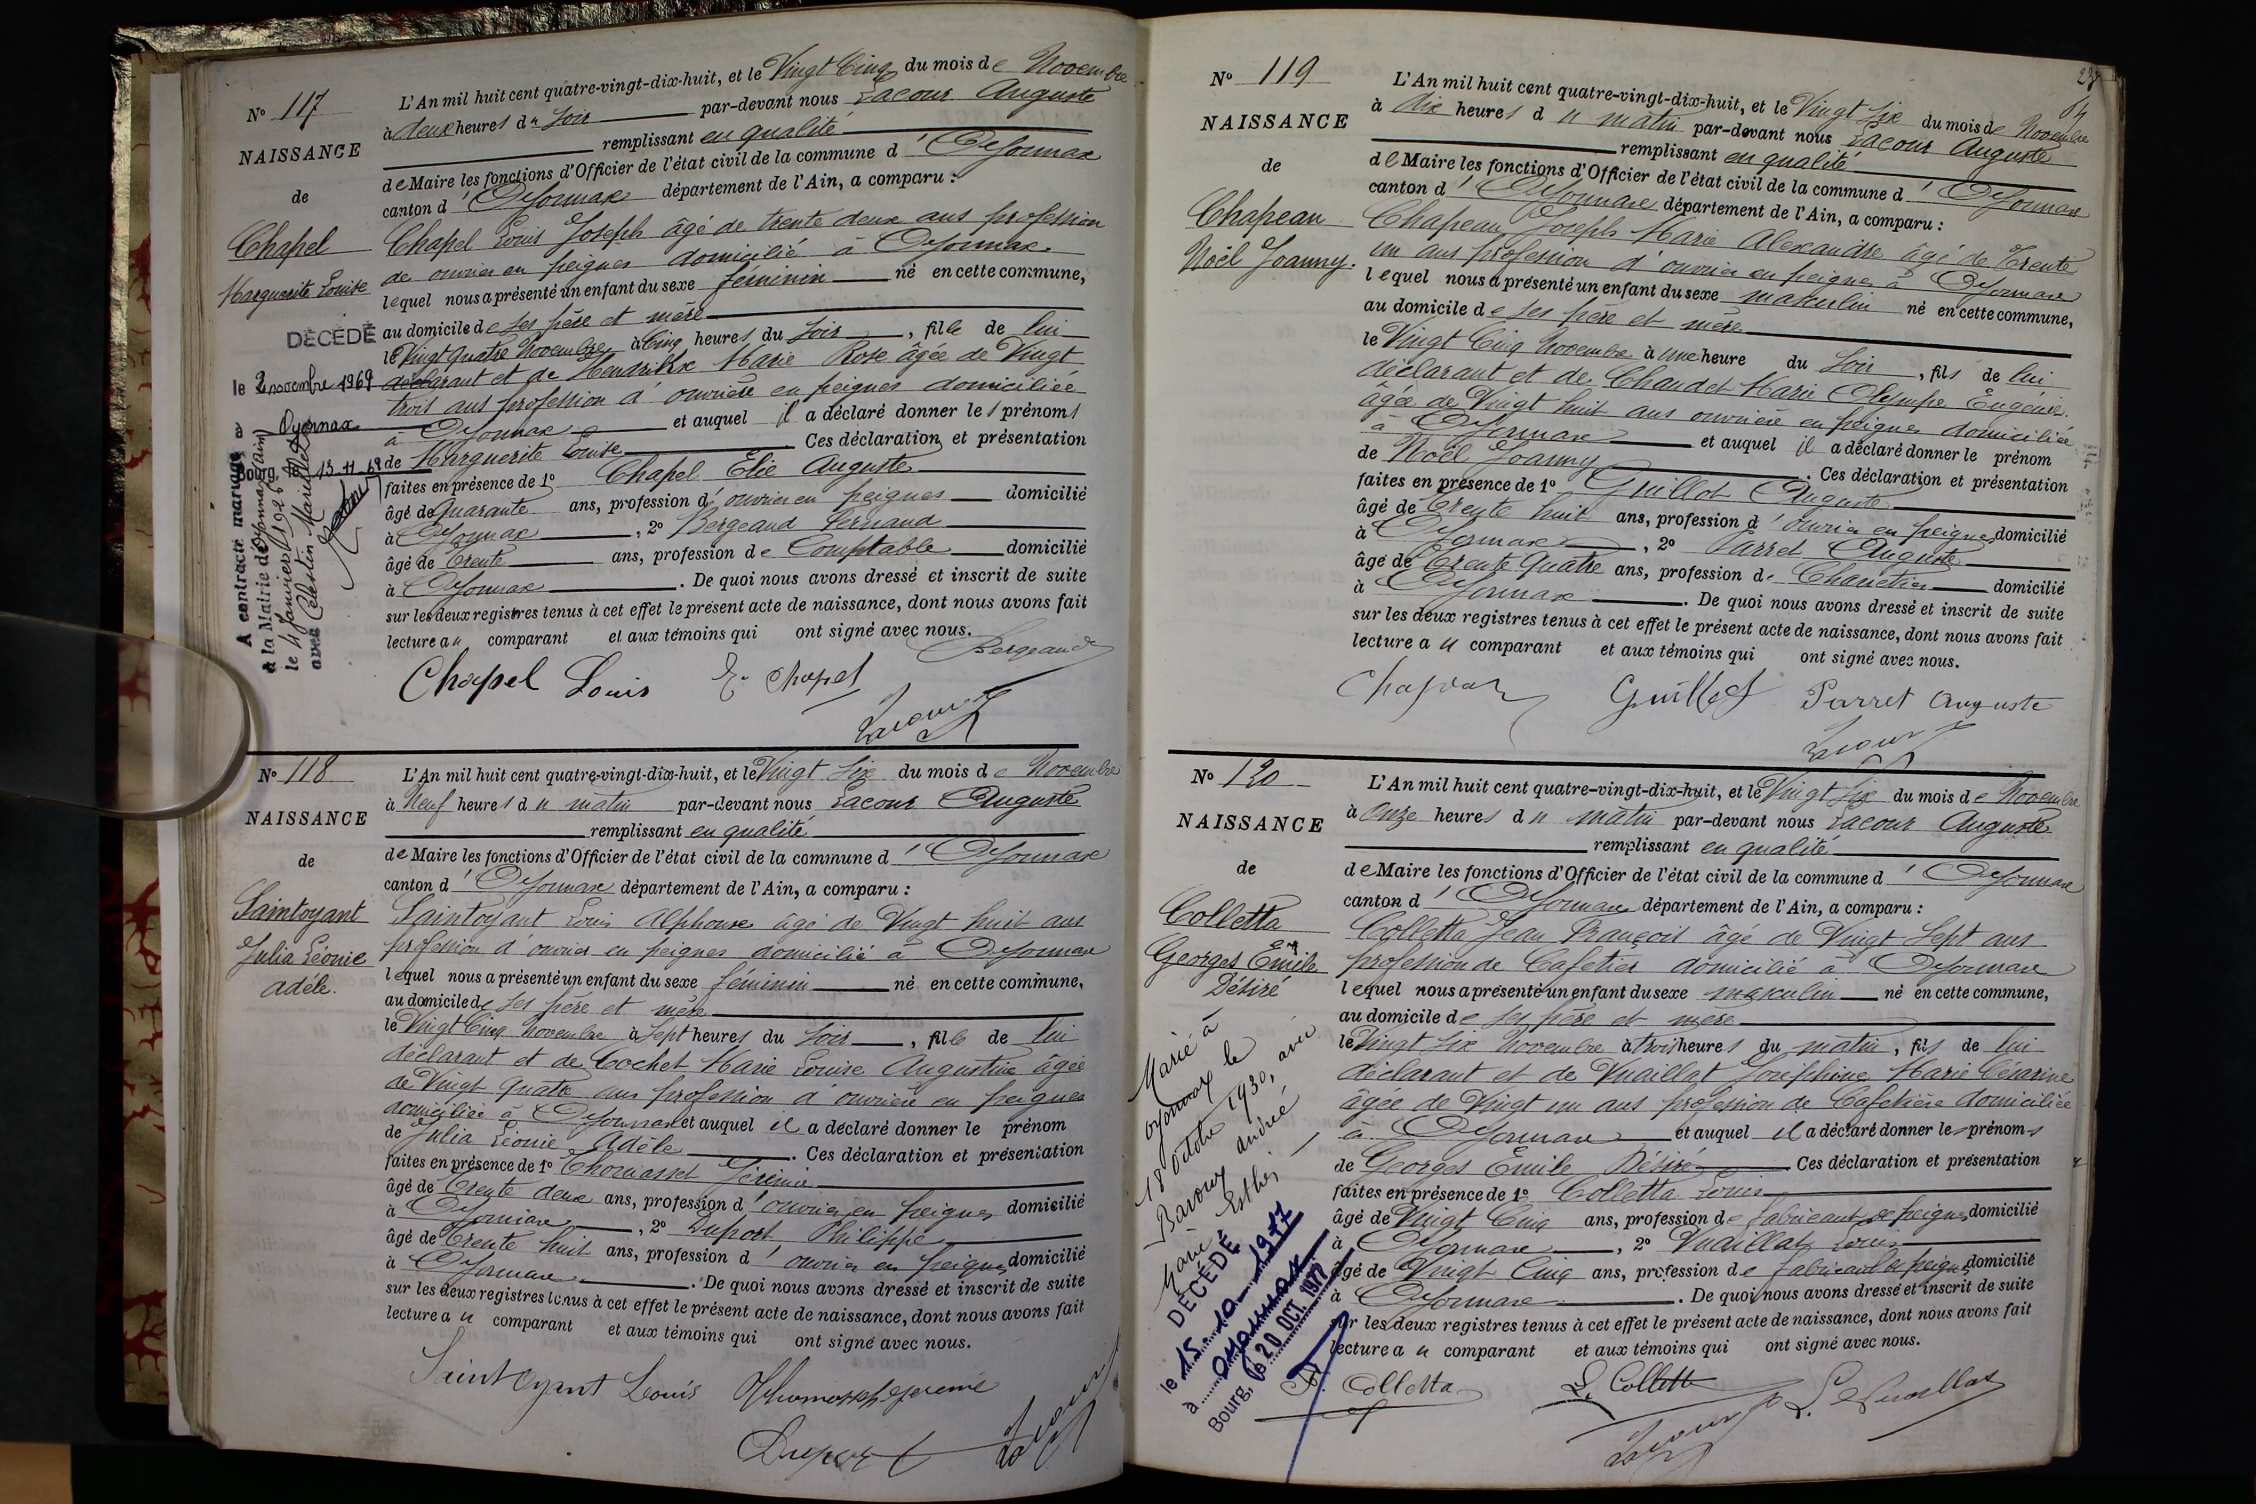 N° 117
NAISSANCE
de
Chapel
Marguerite Louise
DÉCÉDÉ
le 2 novembre 1969
à Oyonnax
Bourg, le 13-11-69
A contracté mariage
à la Mairie de Oyonnax (Ain)
le 4 Janvier 1926
avec Célestin
L'An mil huit cent quatre-vingt-dix-huit, et le Vingt Cinq du mois de Novembre
à deux heures du Soir par-devant nous Lacour Auguste
remplissant en qualité
de Maire les fonctions d'Officier de l'état civil de la commune d'Oyonnax
canton d'Oyonnax département de l'Ain, a comparu :
Chapel Louis Joseph âgé de trente deux ans profession
de ouvrier en peignes domicilié à Oyonnax
lequel nous a présenté un enfant du sexe féminin né en cette commune,
au domicile de ses père et mère
le Vingt quatre Novembre à Cinq heures du Soir, fille de lui
déclarant et de Hendrikx Marie Rose âgée de Vingt
trois ans profession d'ouvrière en peignes domiciliée
à Oyonnax et auquel il a déclaré donner les prénoms
de Marguerite Louise Ces déclaration et présentation
faites en présence de 1° Chapel Élie Auguste
âgé de Quarante ans, profession d'ouvrier en peignes domicilié
à Oyonnax, 2° Bergeaud Fernand
âgé de Trente ans, profession de Comptable domicilié
à Oyonnax. De quoi nous avons dressé et inscrit de suite
sur les deux registres tenus à cet effet le présent acte de naissance, dont nous avons fait
lecture au comparant et aux témoins qui ont signé avec nous.
Bergeaud
Chapel Louis E. Chapel
Lacour
N° 118
NAISSANCE
de
Saintoyant
Julia Léonie
adèle.
L'An mil huit cent quatre-vingt-dix-huit, et le Vingt Six du mois de Novembre
à Neuf heures du matin par-devant nous Lacour Auguste
remplissant en qualité
de Maire les fonctions d'Officier de l'état civil de la commune d'Oyonnax
canton d'Oyonnax département de l'Ain, a comparu :
Saintoyant Louis Alphonse âgé de Vingt huit ans
profession d'ouvrier en peignes domicilié à Oyonnax
lequel nous a présenté un enfant du sexe féminin né en cette commune,
au domicile de ses père et mère
le Vingt Cinq Novembre à Sept heures du Soir, fille de lui
déclarant et de Cochet Marie Louise Augustine âgée
de Vingt quatre ans profession d'ouvrière en peignes
domiciliée à Oyonnax et auquel il a déclaré donner le prénom
de Julia Léonie Adèle. Ces déclaration et présentation
faites en présence de 1° Thomasset Jérémie
âgé de Trente deux ans, profession d'ouvrier en peignes domicilié
à Oyonnax, 2° Duport Philippe
âgé de Trente huit ans, profession d'ouvrier en peignes domicilié
à Oyonnax. De quoi nous avons dressé et inscrit de suite
sur les deux registres tenus à cet effet le présent acte de naissance, dont nous avons fait
lecture au comparant et aux témoins qui ont signé avec nous.
Saintoyant Louis Thomasset Jeremie
Duport Lacour
N° 119
NAISSANCE
de
Chapeau
Noël Joanny.
L'An mil huit cent quatre-vingt-dix-huit, et le Vingt Six du mois de Novembre
à dix heures du matin par-devant nous Lacour Auguste
remplissant en qualité
de Maire les fonctions d'Officier de l'état civil de la commune d'Oyonnax
canton d'Oyonnax département de l'Ain, a comparu :
Chapeau Joseph Marie Alexandre âgé de Trente
un ans profession d'ouvrier en peignes à Oyonnax
lequel nous a présenté un enfant du sexe masculin né en cette commune,
au domicile de ses père et mère
le Vingt Cinq Novembre à une heure du Soir, fils de lui
déclarant et de Chaudet Marie Olympe Eugénie
âgée de Vingt huit ans ouvrière en peignes domiciliée
à Oyonnax et auquel il a déclaré donner le prénom
de Noël Joanny. Ces déclaration et présentation
faites en présence de 1° Guillot Auguste
âgé de Trente huit ans, profession d'ouvrier en peignes domicilié
à Oyonnax, 2° Parret Auguste
âgé de Trente Quatre ans, profession de Charretier domicilié
à Oyonnax. De quoi nous avons dressé et inscrit de suite
sur les deux registres tenus à cet effet le présent acte de naissance, dont nous avons fait
lecture au comparant et aux témoins qui ont signé avec nous.
Chapeau Guillot Parret Auguste
Lacour
N° 120
NAISSANCE
de
Colletta
Georges Emile
Désiré
Marié à
Oyonnax le
18 octobre 1930, avec
Baroux Andrée
Marie Esther
DÉCÉDÉ
le 15-10-1977
à oyonnax
Bourg, le 20 OCT. 1977
L'An mil huit cent quatre-vingt-dix-huit, et le Vingt Six du mois de Novembre
à Onze heures du matin par-devant nous Lacour Auguste
remplissant en qualité
de Maire les fonctions d'Officier de l'état civil de la commune d'Oyonnax
canton d'Oyonnax département de l'Ain, a comparu :
Colletta Jean François âgé de Vingt Sept ans
profession de Cafetier domicilié à Oyonnax
lequel nous a présenté un enfant du sexe masculin né en cette commune,
au domicile de ses père et mère
le Vingt Six Novembre à trois heures du matin, fils de lui
déclarant et de Vuaillat Joséphine Marie Césarine
âgée de Vingt un ans profession de Cafetière domiciliée
à Oyonnax et auquel il a déclaré donner les prénoms
de Georges Emile Désiré Ces déclaration et présentation
faites en présence de 1° Colletta Louis
âgé de Vingt Cinq ans, profession de fabricant de peignes domicilié
à Oyonnax, 2° Vuaillat Louis
âgé de Vingt Cinq ans, profession de fabricant de peignes domicilié
à Oyonnax. De quoi nous avons dressé et inscrit de suite
sur les deux registres tenus à cet effet le présent acte de naissance, dont nous avons fait
lecture au comparant et aux témoins qui ont signé avec nous.
Colletta L. Colletta L. Vuaillat
Lacour